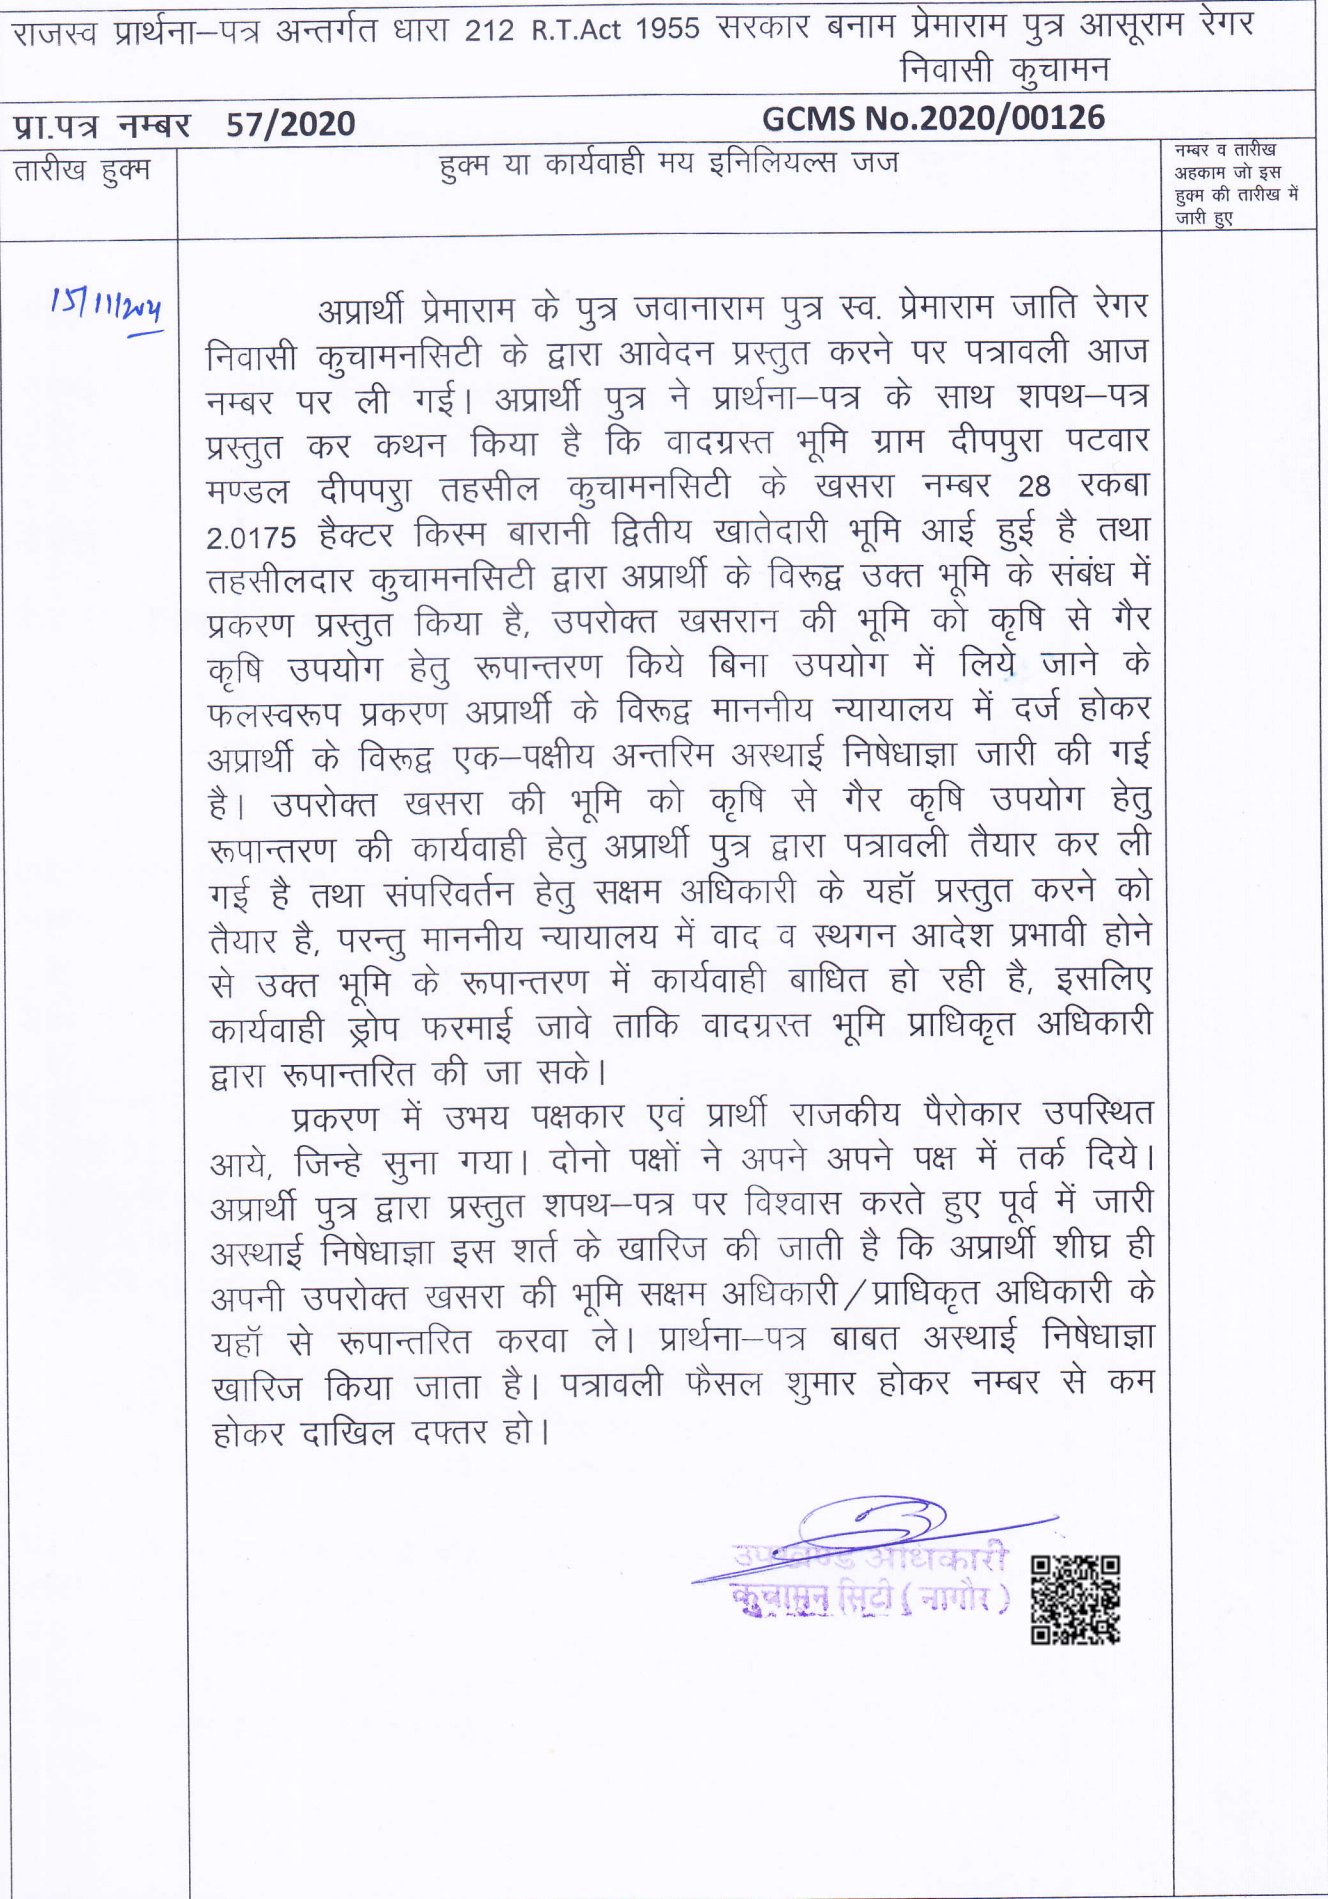 राजस्व प्रार्थना–पत्र अन्तर्गत धारा 212 R.T.Act 1955 सरकार बनाम प्रेमाराम पुत्र आसूराम रेगर
निवासी कुचामन
प्रा.पत्र नम्बर 57/2020 GCMS No.2020/00126
तारीख हुक्म
हुक्म या कार्यवाही मय इनिलियल्स जज
नम्बर व तारीख
अहकाम जो इस
हुक्म की तारीख में
जारी हुए
15/11/2021
अप्रार्थी प्रेमाराम के पुत्र जवानाराम पुत्र स्व. प्रेमाराम जाति रेगर
निवासी कुचामनसिटी के द्वारा आवेदन प्रस्तुत करने पर पत्रावली आज
नम्बर पर ली गई। अप्रार्थी पुत्र ने प्रार्थना–पत्र के साथ शपथ–पत्र
प्रस्तुत कर कथन किया है कि वादग्रस्त भूमि ग्राम दीपपुरा पटवार
मण्डल दीपपरुा तहसील कुचामनसिटी के खसरा नम्बर 28 रकबा
2.0175 हैक्टर किस्म बारानी द्वितीय खातेदारी भूमि आई हुई है तथा
तहसीलदार कुचामनसिटी द्वारा अप्रार्थी के विरूद्व उक्त भूमि के संबंध में
प्रकरण प्रस्तुत किया है, उपरोक्त खसरान की भूमि को कृषि से गैर
कृषि उपयोग हेतु रूपान्तरण किये बिना उपयोग में लिये जाने के
फलस्वरूप प्रकरण अप्रार्थी के विरूद्व माननीय न्यायालय में दर्ज होकर
अप्रार्थी के विरूद्व एक–पक्षीय अन्तरिम अस्थाई निषेधाज्ञा जारी की गई
है। उपरोक्त खसरा की भूमि को कृषि से गैर कृषि उपयोग हेतु
रूपान्तरण की कार्यवाही हेतु अप्रार्थी पुत्र द्वारा पत्रावली तैयार कर ली
गई है तथा संपरिवर्तन हेतु सक्षम अधिकारी के यहॉ प्रस्तुत करने को
तैयार है, परन्तु माननीय न्यायालय में वाद व स्थगन आदेश प्रभावी होने
से उक्त भूमि के रूपान्तरण में कार्यवाही बाधित हो रही है, इसलिए
कार्यवाही ड्रोप फरमाई जावे ताकि वादग्रस्त भूमि प्राधिकृत अधिकारी
द्वारा रूपान्तरित की जा सके।
प्रकरण में उभय पक्षकार एवं प्रार्थी राजकीय पैरोकार उपस्थित
आये, जिन्हे सुना गया। दोनो पक्षों ने अपने अपने पक्ष में तर्क दिये।
अप्रार्थी पुत्र द्वारा प्रस्तुत शपथ–पत्र पर विश्वास करते हुए पूर्व में जारी
अस्थाई निषेधाज्ञा इस शर्त के खारिज की जाती है कि अप्रार्थी शीघ्र ही
अपनी उपरोक्त खसरा की भूमि सक्षम अधिकारी/प्राधिकृत अधिकारी के
यहॉ से रूपान्तरित करवा ले। प्रार्थना–पत्र बाबत अस्थाई निषेधाज्ञा
खारिज किया जाता है। पत्रावली फैसल शुमार होकर नम्बर से कम
होकर दाखिल दफ्तर हो।
उपखण्ड अधिकारी
कुचामन सिटी (नागौर)